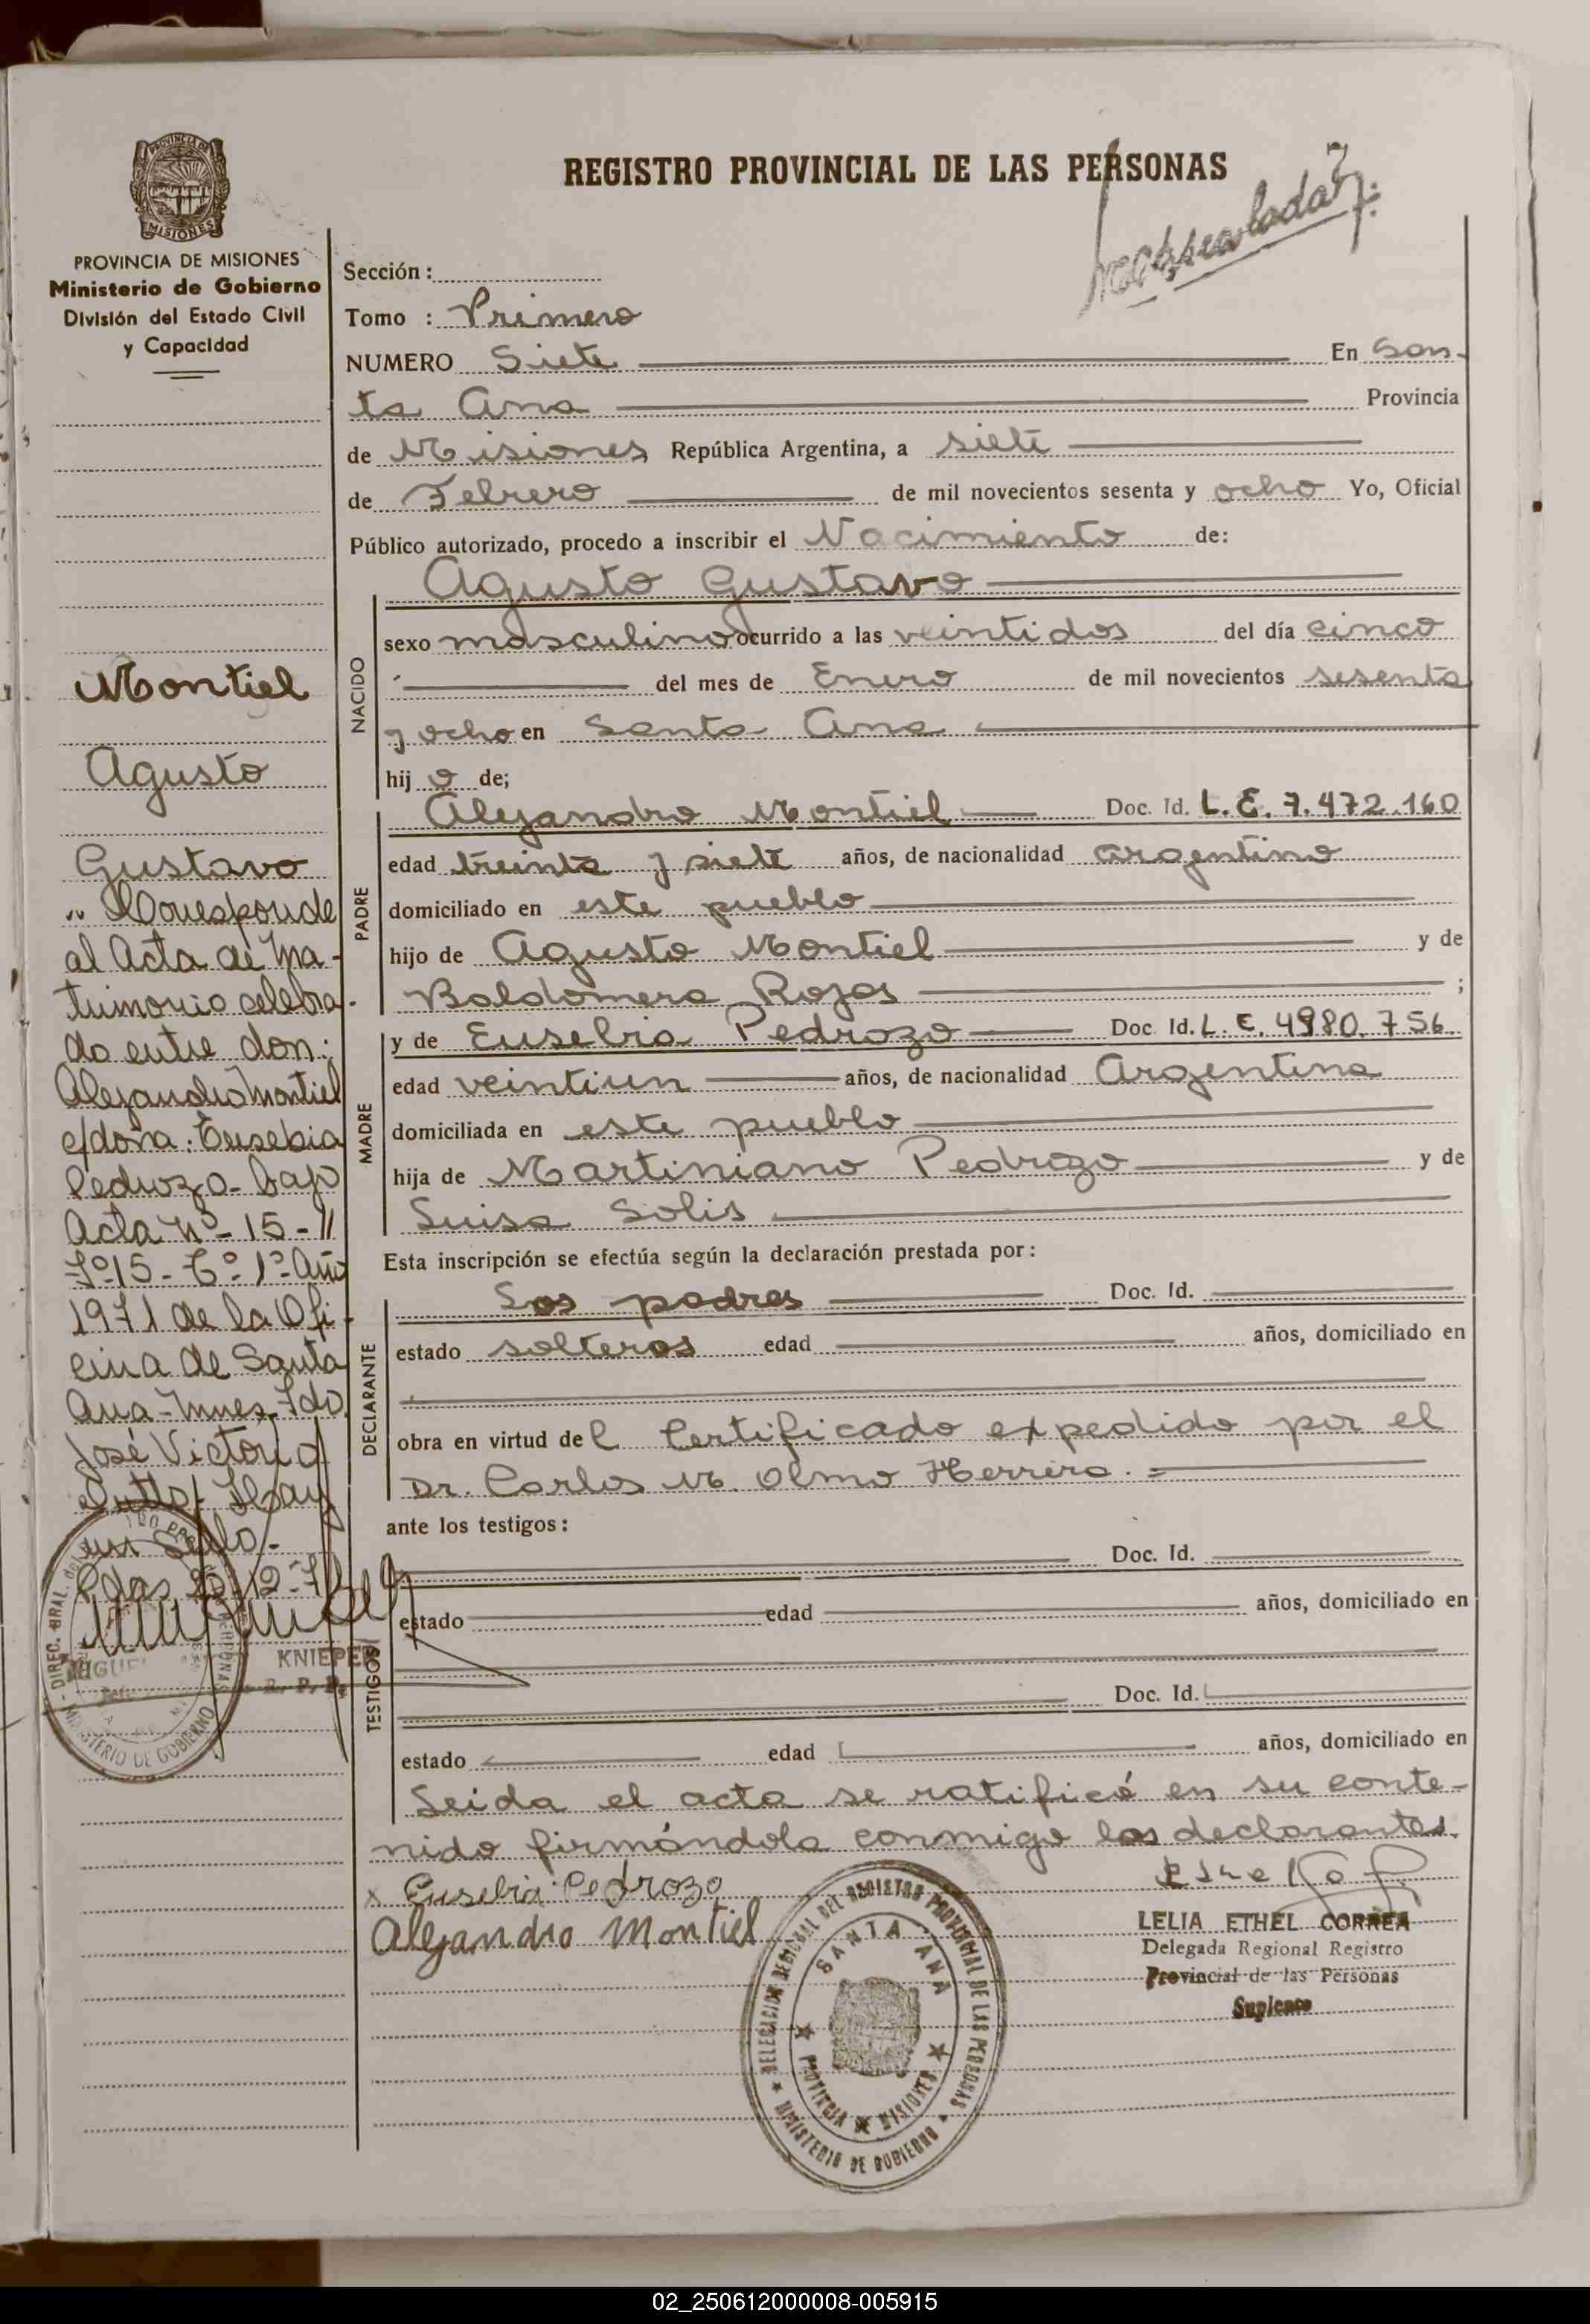 REGISTRO PROVINCIAL DE LAS PERSONAS
7
PROVINCIA DE
MISIONES
PROVINCIA DE MISIONES
Ministerio de Gobierno
División del Estado Civil
y Capacidad
Montiel
Agusto
Gustavo
Corresponde
al Acta de Ma-
trimonio celebra-
do entre don:
Alejandro Montiel
c/doña: Eusebia
Pedrozo- bajo
Acta Nº- 15-
Fº15- Tº-1º-Año
1971 de la Ofi-
cina de Santa
Ana-Mnes. Fdo.
José Victor
Hay
un Sello-
Pdas
KNIEPER
R. P. P.
MINISTERIO DE GOBIERNO
Sección :
Tomo : Primero
NUMERO Siete En San-
ta Ana Provincia
de Misiones República Argentina, a siete
de Febrero de mil novecientos sesenta y ocho Yo, Oficial
Público autorizado, procedo a inscribir el Nacimiento de:
NACIDO
Agusto Gustavo
sexo masculino ocurrido a las veintidos del día cinco
del mes de Enero de mil novecientos sesenta
y ocho en Santa Ana
hij o de;
PADRE
Alejandro Montiel Doc. Id. L.E. 7.472.160
edad treinta y siete años, de nacionalidad argentino
domiciliado en este pueblo
hijo de Agusto Montiel y de
Baldomera Rojas ;
MADRE
y de Eusebia Pedrozo Doc. Id. L.E. 4980.756
edad veintiun años, de nacionalidad Argentina
domiciliada en este pueblo
hija de Martiniano Pedrozo y de
Luisa Solis
Esta inscripción se efectúa según la declaración prestada por :
DECLARANTE
Los padres Doc. Id.
estado solteros edad años, domiciliado en
obra en virtud del Certificado expedido por el
Dr. Carlos M. Olmo Herrera.
ante los testigos :
TESTIGOS
Doc. Id.
estado edad años, domiciliado en
Doc. Id.
estado edad años, domiciliado en
Leida el acta se ratificó en su conte-
nido firmándola conmigo los declarantes.
x Eusebia Pedrozo
Alejandro Montiel
DELEGACION REGIONAL DEL REGISTRO PROVINCIAL DE LAS PERSONAS
SANTA ANA
PROVINCIA MISIONES
MINISTERIO DE GOBIERNO
LELIA ETHEL CORREA
Delegada Regional Registro
Provincial de las Personas
Suplente
02_250612000008-005915